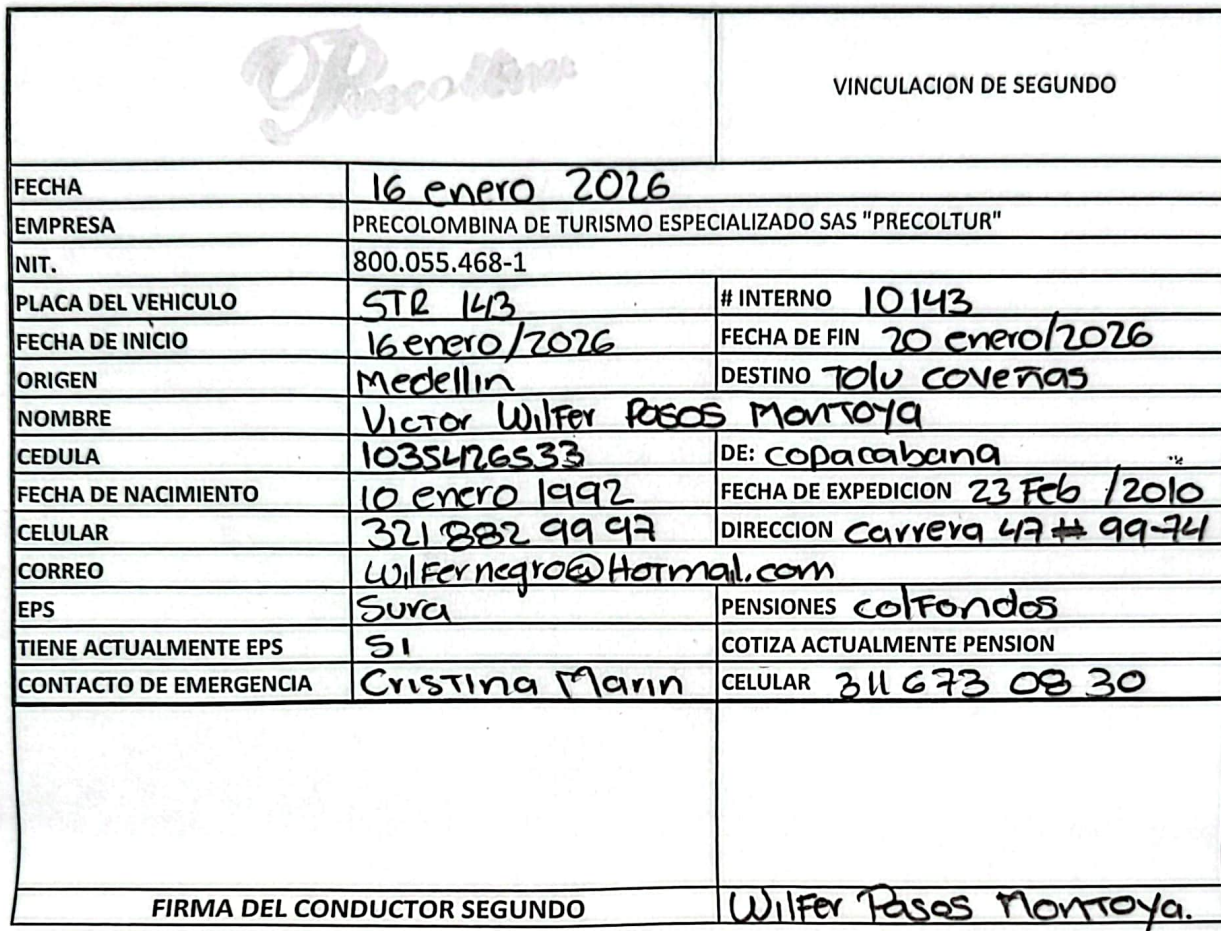 Precoltur
VINCULACION DE SEGUNDO
FECHA 16 enero 2026
EMPRESA PRECOLOMBINA DE TURISMO ESPECIALIZADO SAS "PRECOLTUR"
NIT. 800.055.468-1
PLACA DEL VEHICULO STR 143 # INTERNO 10143
FECHA DE INICIO 16 enero/2026 FECHA DE FIN 20 enero/2026
ORIGEN Medellin DESTINO Tolu coveñas
NOMBRE Victor Wilfer Posos Montoya
CEDULA 1035426533 DE: copacabana
FECHA DE NACIMIENTO 10 enero 1992 FECHA DE EXPEDICION 23 Feb /2010
CELULAR 321 882 99 97 DIRECCION carrera 47 # 99-74
CORREO Wilfernegro@Hotmail.com
EPS Sura PENSIONES colfondos
TIENE ACTUALMENTE EPS SI COTIZA ACTUALMENTE PENSION
CONTACTO DE EMERGENCIA Cristina Marin CELULAR 311 673 08 30
FIRMA DEL CONDUCTOR SEGUNDO Wilfer Posos Montoya.